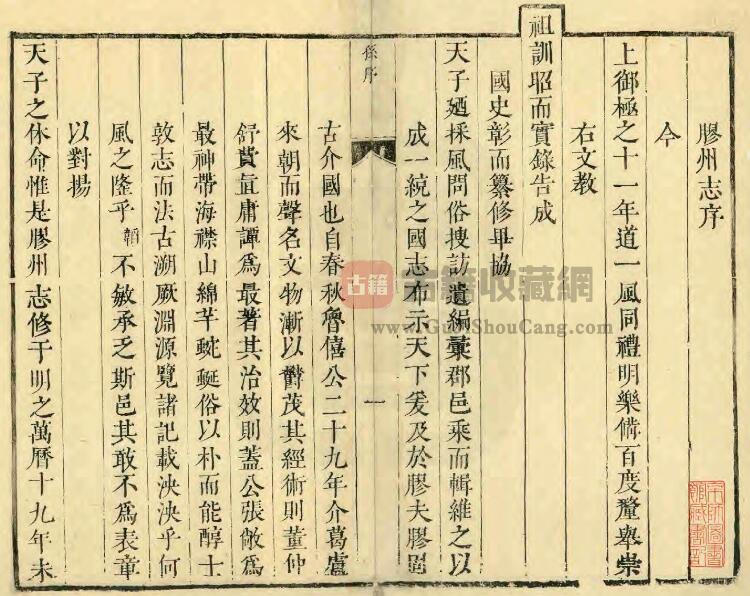 膠州志序
今
上御極之十一年道一風同禮明樂備百度釐舉崇
右文教
祖訓昭而實錄告成
國史彰而纂修畢協
天子廼採風問俗搜訪遺編彙郡邑乘而輯維之以
成一統之國志布示天下爰及於膠夫膠固
孫序
一
古介國也自春秋魯僖公二十九年介葛盧
來朝而聲名文物漸以欝茂其經術則董仲
舒費直庸譚為最著其治效則蓋公張敞為
最神帶海襟山綿芊蜿蜒俗以朴而能醇士
敦志而法古溯厥淵源覽諸記載泱泱乎何
風之隆乎 不敏承乏斯邑其敢不為表章
以對揚
天子之休命惟是膠州志修于明之萬曆十九年未
古籍
古籍收藏網
www.GuJiShouCang.com